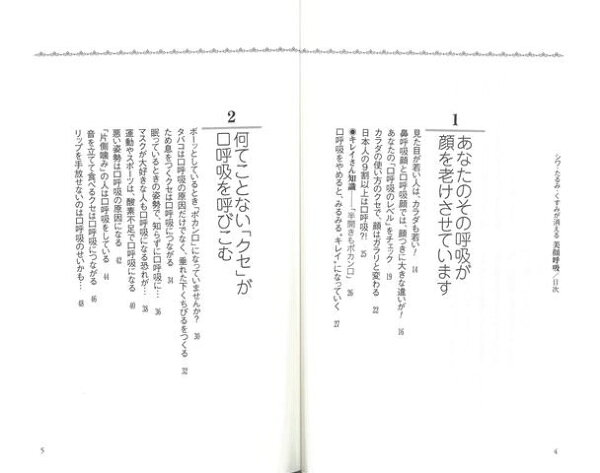 シワ・たるみ・くすみが消える 美顔呼吸/目次
1
あなたのその呼吸が
顔を老けさせています
見た目が若い人は、カラダも若い! 14
鼻呼吸顔と口呼吸顔では、顔つきに大きな違いが! 16
あなたの「口呼吸のレベル」をチェック 19
カラダの使い方のクセで、顔はガラリと変わる 22
日本人の9割以上は口呼吸?! 25
●キレイさん知識――「半開きもポカン口」 26
口呼吸をやめると、みるみる“キレイ”になっていく 27
4
2
何てことない「クセ」が
口呼吸を呼びこむ
ボーッとしているとき「ポカン口」になっていませんか? 30
タバコは口呼吸の原因だけでなく、垂れた下くちびるをつくる 32
ため息をつくクセは口呼吸につながる 34
眠っているときの姿勢で、知らずに口呼吸に… 36
マスクが大好きな人も口呼吸になる恐れが… 38
運動やスポーツは、酸素不足で口呼吸になる 40
悪い姿勢は口呼吸の原因になる 42
「片側噛み」の人は口呼吸をしている 44
音を立てて食べるクセは口呼吸につながる 46
リップを手放せないのは口呼吸のせいかも… 48
5